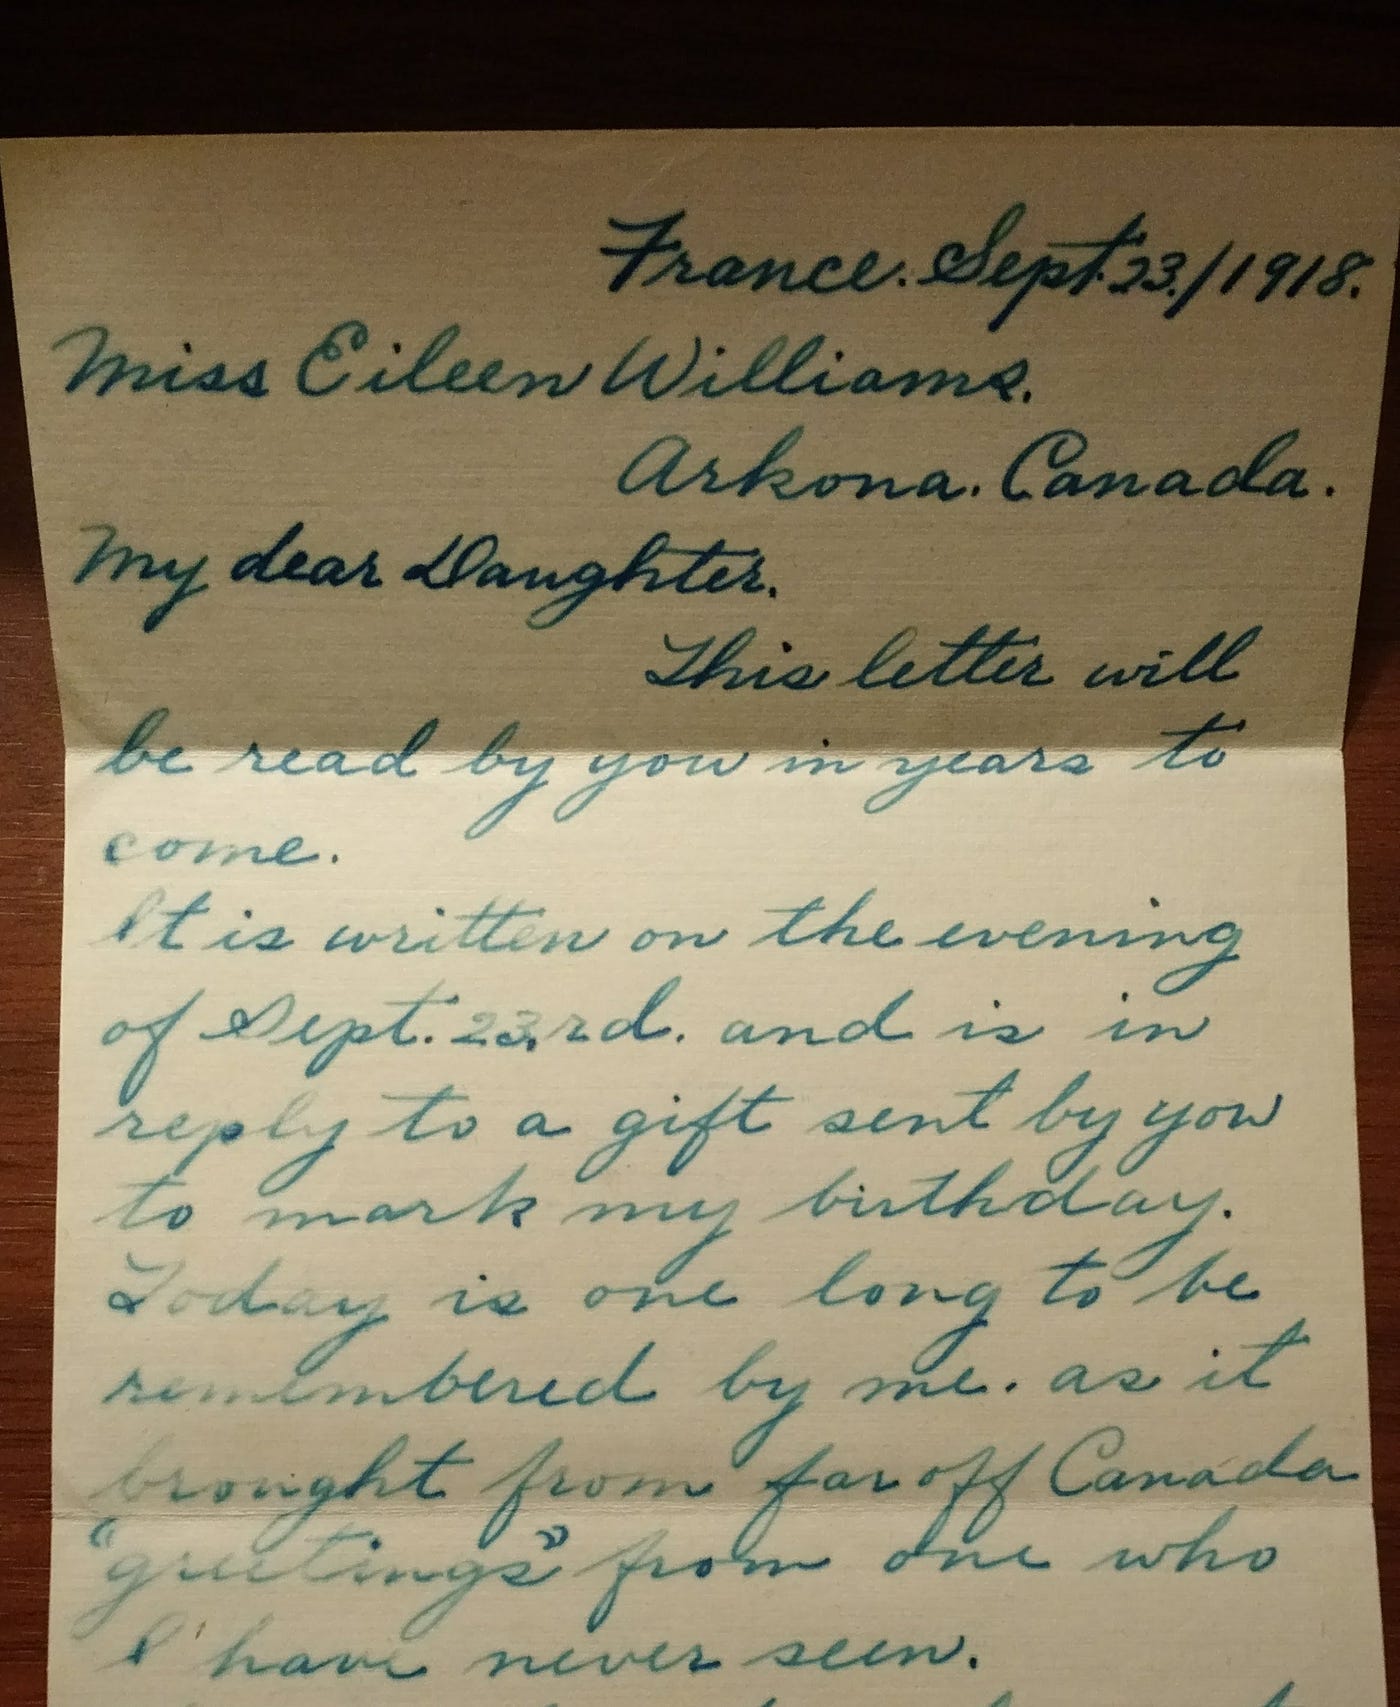 France. Sept. 23./1918.
Miss Eileen Williams.
Arkona. Canada.
My dear Daughter.
This letter will
be read by you in years to
come.
It is written on the evening
of Sept. 23.rd. and is in
reply to a gift sent by you
to mark my birthday.
Today is one long to be
remembered by me. as it
brought from far off Canada
"greetings" from one who
I have never seen.